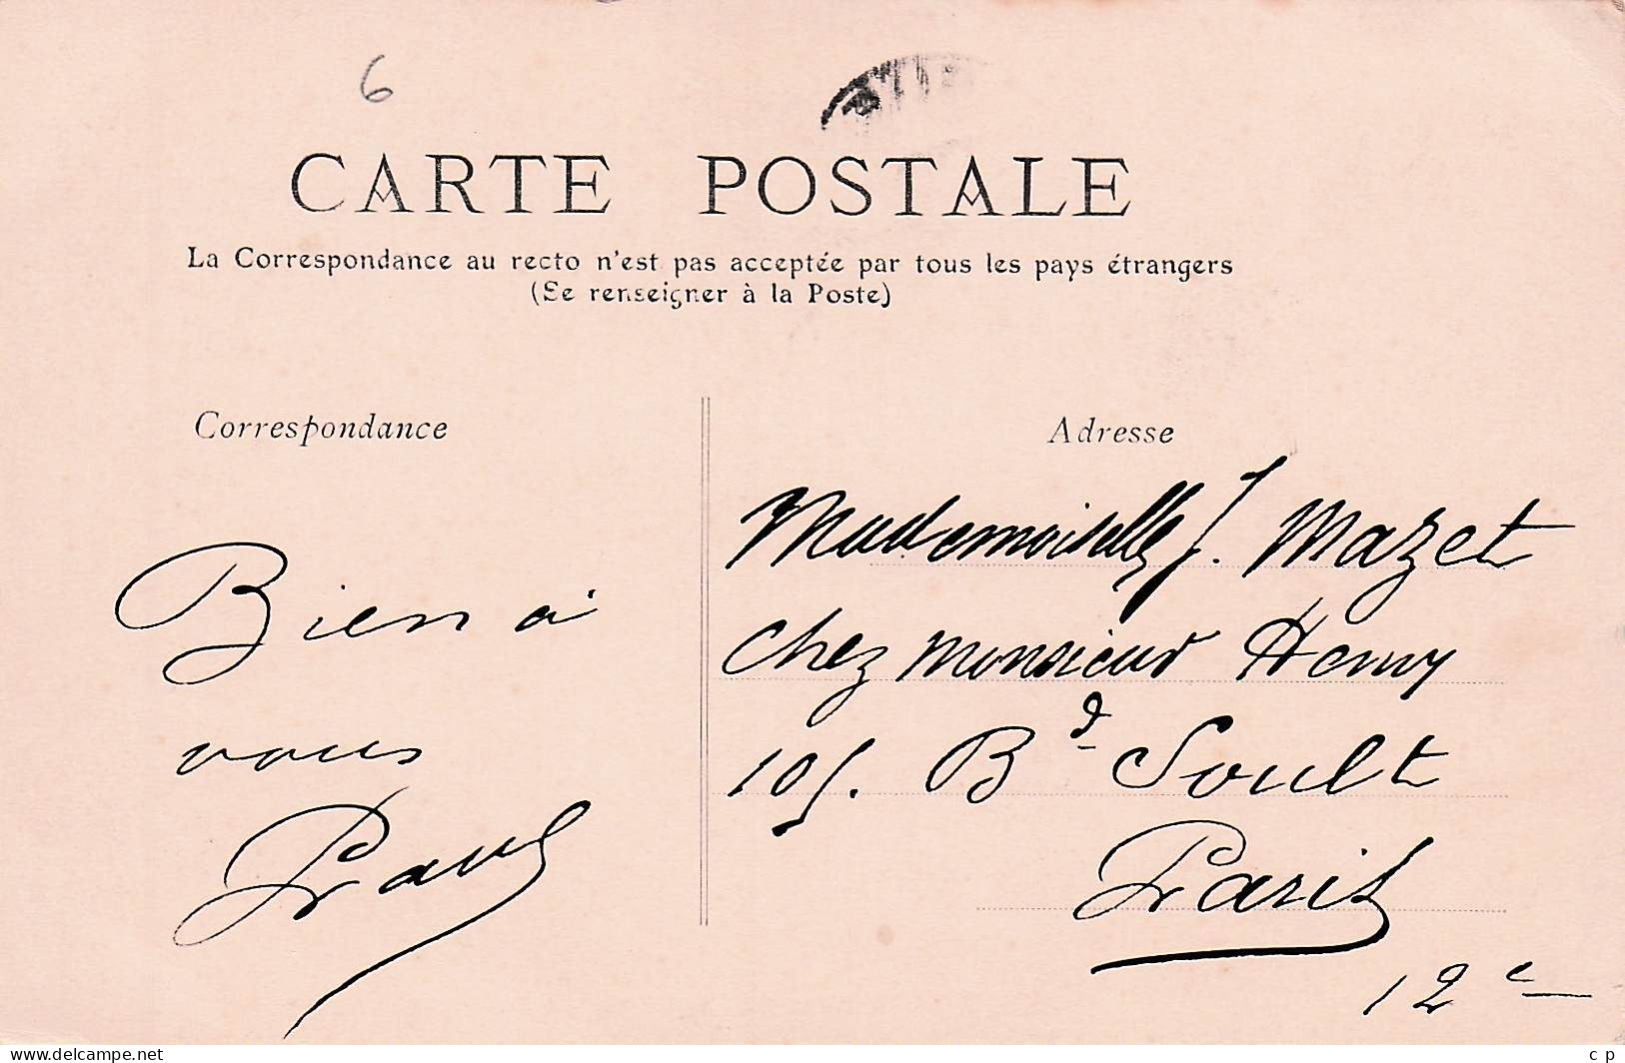 6
CARTE POSTALE
La Correspondance au recto n'est pas acceptée par tous les pays étrangers
(Se renseigner à la Poste)
Correspondance
Bien à
vous
Paul
Adresse
Mademoiselle J. Mazet
Chez Monsieur Henry
105. Bd Soult
Paris
12e
www.delcampe.net
c p